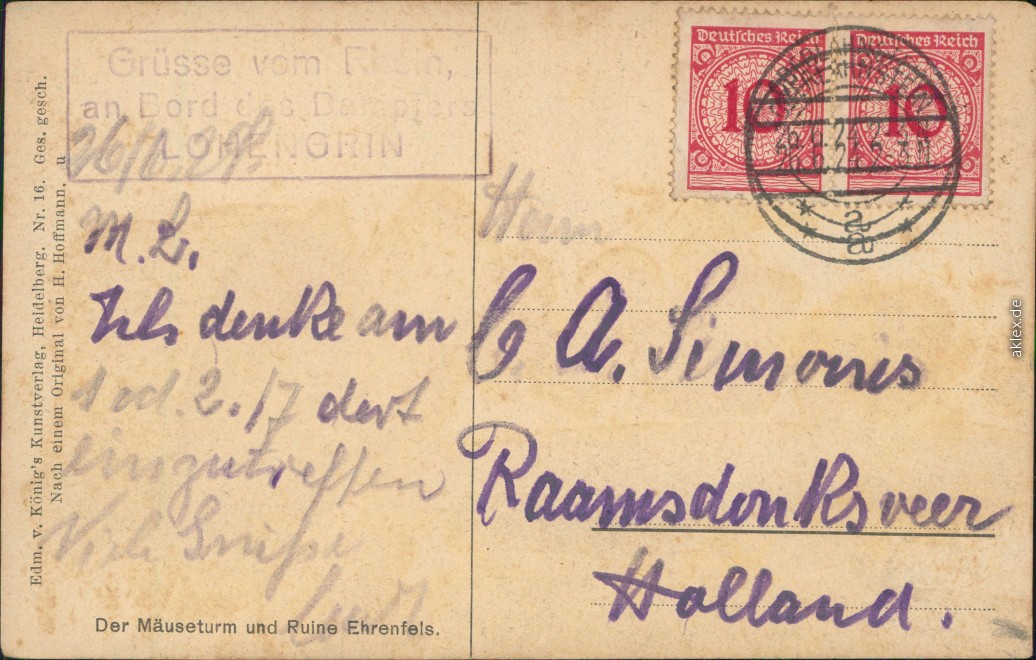 Grüsse vom Rhein,
an Bord des Dampfers
LOHENGRIN
M. L.
Ich denke am
1 od. 2./7 dort
einzutreffen
Viele Grüße
Deutsches Reich
10
Deutsches Reich
10
a
a
Herrn
C A. Simonis
Raamsdonksveer
Holland.
Edm. v. König's Kunstverlag, Heidelberg. Nr. 16. Ges. gesch.
Nach einem Original von H. Hoffmann. u
Der Mäuseturm und Ruine Ehrenfels.
aklex.de